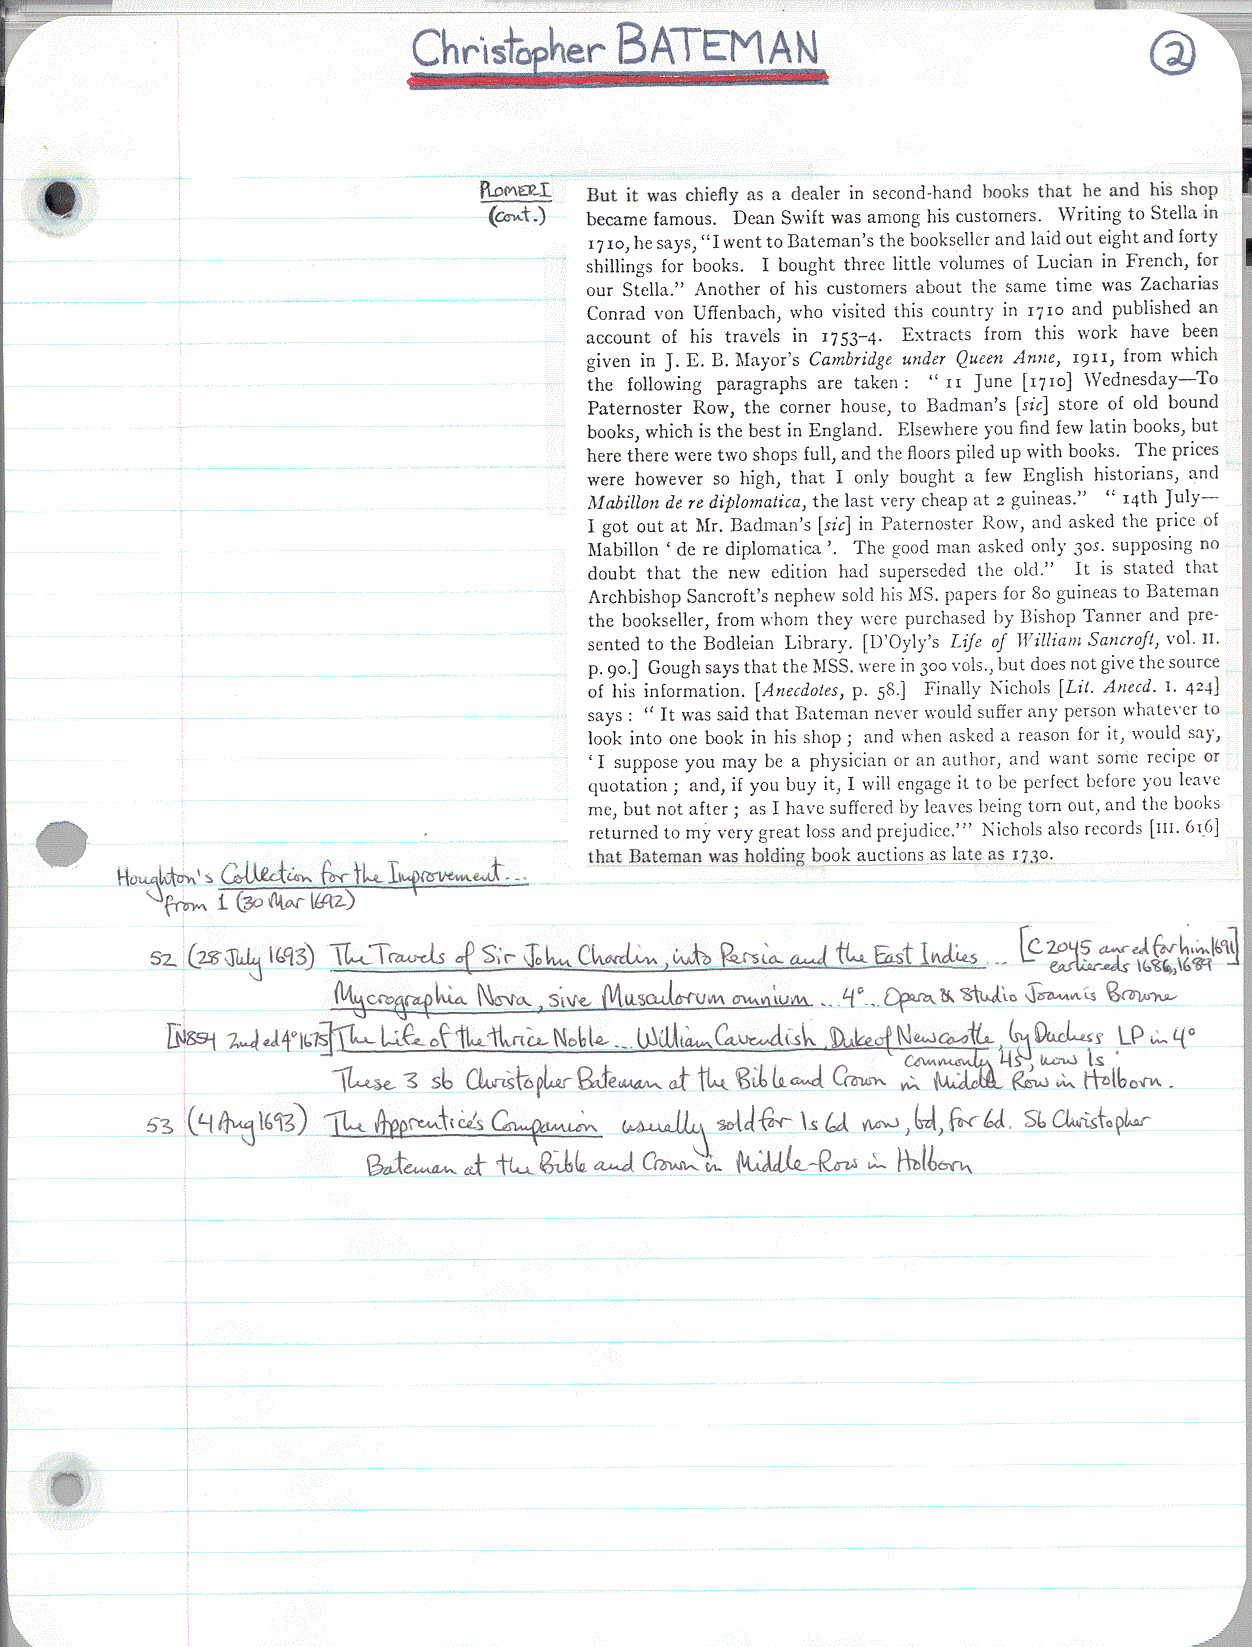 Christopher BATEMAN
2
PLOMER I
(cont.)
But it was chiefly as a dealer in second-hand books that he and his shop
became famous. Dean Swift was among his customers. Writing to Stella in
1710, he says, “I went to Bateman’s the bookseller and laid out eight and forty
shillings for books. I bought three little volumes of Lucian in French, for
our Stella.” Another of his customers about the same time was Zacharias
Conrad von Uffenbach, who visited this country in 1710 and published an
account of his travels in 1753–4. Extracts from this work have been
given in J. E. B. Mayor’s Cambridge under Queen Anne, 1911, from which
the following paragraphs are taken : “ 11 June [1710] Wednesday—To
Paternoster Row, the corner house, to Badman’s [sic] store of old bound
books, which is the best in England. Elsewhere you find few latin books, but
here there were two shops full, and the floors piled up with books. The prices
were however so high, that I only bought a few English historians, and
Mabillon de re diplomatica, the last very cheap at 2 guineas.” “ 14th July—
I got out at Mr. Badman’s [sic] in Paternoster Row, and asked the price of
Mabillon ‘ de re diplomatica ’. The good man asked only 30s. supposing no
doubt that the new edition had superseded the old.” It is stated that
Archbishop Sancroft’s nephew sold his MS. papers for 80 guineas to Bateman
the bookseller, from whom they were purchased by Bishop Tanner and pre-
sented to the Bodleian Library. [D’Oyly’s Life of William Sancroft, vol. II.
p. 90.] Gough says that the MSS. were in 300 vols., but does not give the source
of his information. [Anecdotes, p. 58.] Finally Nichols [Lit. Anecd. I. 424]
says : “ It was said that Bateman never would suffer any person whatever to
look into one book in his shop ; and when asked a reason for it, would say,
‘ I suppose you may be a physician or an author, and want some recipe or
quotation ; and, if you buy it, I will engage it to be perfect before you leave
me, but not after ; as I have suffered by leaves being torn out, and the books
returned to my very great loss and prejudice.’” Nichols also records [III. 616]
that Bateman was holding book auctions as late as 1730.
Houghton's Collection for the Improvement...
from 1 (30 Mar 1692)
52 (28 July 1693) The Travels of Sir John Chardin, into Persia and the East Indies ... [C2045 anr ed for him 1691]
earlier eds 1686, 1689
Mycrographia Nova, sive Musculorum omnium ... 4° ... Opera & Studio Joannis Browne
[N854 2nd ed 4° 1675] The Life of the thrice Noble... William Cavendish, Duke of Newcastle, by Duchess LP in 4°
commonly 4s, now 1s
These 3 sb Christopher Bateman at the Bible and Crown in Middle Row in Holborn.
53 (4 Aug 1693) The Apprentice's Companion usually sold for 1s 6d now, bd, for 6d. Sb Christopher
Bateman at the Bible and Crown in Middle-Row in Holborn